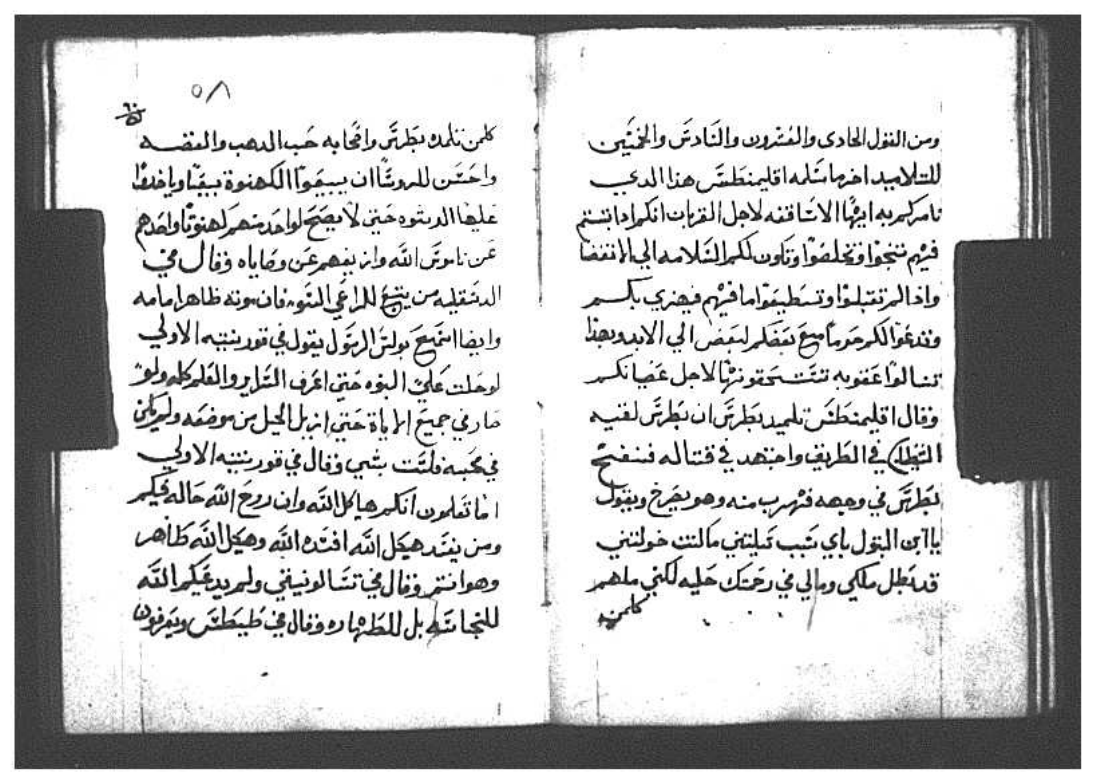 ومن القول الحادى والعشرون والسادس والخمسين
للتلاميد اخر ماسلمه اقليمنطس هدا الدي
نامركم به ايها الاساقفه لاهل القربان انكم ادا
فيهم تنجوا وتخلصوا وتكون لكم السلامه الي الانقضا
وادا لم تقبلوا وتسطيعوا ما فيهم
بعضكم لبعض الي الابد وبهدا
عقوبه تستحقونها لاجل عصيانكم
وقال اقليمنطس تلميد بطرس ان بطرس لقيه
الشيطان في الطريق واجتهد في قتاله فنفخ
بطرس في وجهه فهرب منه وهو يصرخ ويقول
ياابن البتول باي سبب
قد بطل ملكي ومالي في رحمتك حيله لكني ملهم
كلمن
٥٨
كلمن تلمده بطرس واصحابه حب الدهب والفضه
ان يبيعوا الكهنوة بيعا وياخدوا
عليها الرشوه حتي لا يصح لواحد منهم كهنوتا واحدهم
عن ناموس الله وازيغهم عن وصاياه وقال في
الدسقليه من يتبع للراعي السو فان موته ظاهر امامه
وايضا اسمع بولس الرسول يقول في قورنتيه الاولي
لو حلت علي النبوه حتي اعرف السراير والعلم كله ولو
صار في جميع الامانة حتي ازيل الجبل من موضعه ولم يكن
في محبه فلست بشي وقال في قورنتيه الاولي
اما تعلمون انكم هياكل الله وان روح الله حاله فيكم
ومن يفسد هيكل الله افسده الله وهيكل الله طاهر
وهو انتم وقال في تسالونيقي ولم يدعكم الله
للنجاسه بل للطهاره وقال في طيطس ويعرفون